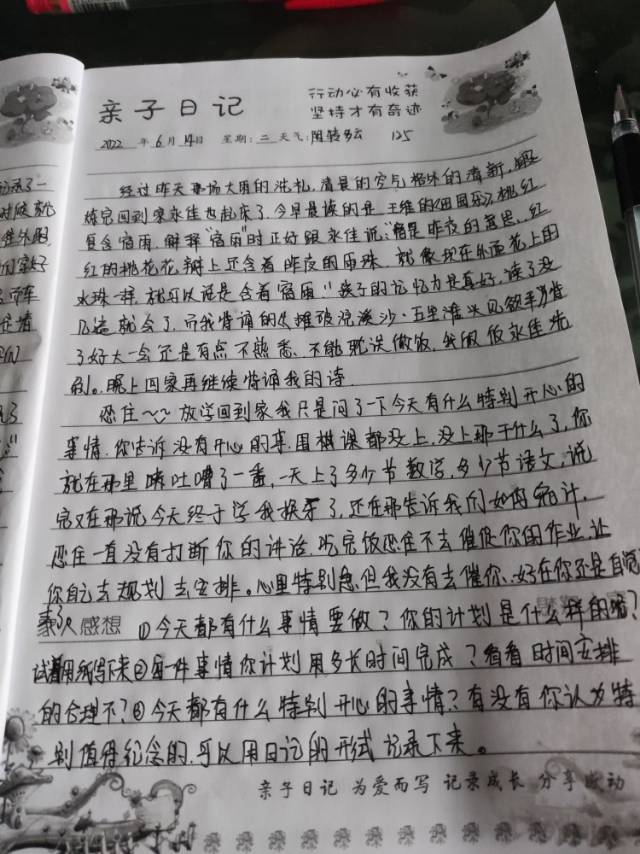 亲子日记
行动必有收获
坚持才有奇迹
2022 年 6 月 14日 星期: 二 天气: 阴转多云 125
经过昨天一场大雨的洗礼,清晨的空气格外的清新,锻
炼完回到家永佳也起来了,今早晨读的是王维的《田园乐》,桃红
复含宿雨,解释"宿雨"时正好跟永佳说:"宿是昨夜的意思,红
红的桃花花瓣上还含着昨夜的雨珠,就像现在外面花上的
水珠一样,就可以说是含着宿雨。"孩子的记忆力是真好,读了没
几遍就会了,而我背诵的《摊破浣溪沙·五里滩头风欲平》背
了好大一会还是有点不熟悉,不能耽误做饭,我做饭永佳洗
刷。晚上回家再继续背诵我的诗.
忍住~~放学回到家我只是问了一下今天有什么特别开心的
事情,你告诉没有开心的事,围棋课都没上,没上那干什么了,你
就在那里嘚吐嘈了一番,一天上了多少节数学,多少节语文,说
完又在那说今天终于学我换牙了,还在那告诉我们如何统计,
忍住一直没有打断你的讲话,吃完饭忍住不去催促你的作业,让
你自己去规划去安排。心里特别急,但我没有去催你,好在你还是自觉
家人感想 ①今天都有什么事情要做?你的计划是什么样的呢?
试着用纸写下来②每一件事情你计划用多长时间完成?看看时间安排
的合理不?③今天都有什么特别开心的事情?有没有你认为特
别值得纪念的,可以用日记的形式记录下来。
亲子日记 为爱而写 记录成长 分享感动